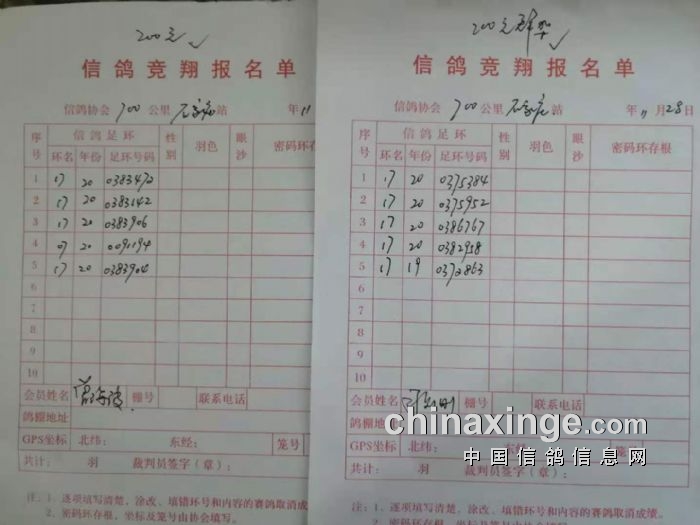 200元 ✓
信鸽竞翔报名单
信鸽协会 700 公里 石家庄 站 年 11
序号 信鸽足环 性别 羽色 眼沙 密码环存根
环名 年份 足环号码
1 17 20 0383472
2 17 20 0383142
3 17 20 0383906
4 07 20 0091194
5 17 20 0383904
6
7
8
9
10
会员姓名 棚号 联系电话
鸽棚地址
GPS坐标 北纬: 东经: 笼号
共计: 羽 裁判员签字(章):
注:1、逐项填写清楚,涂改、填错环号和内容的赛鸽取消成绩
2、密码环存根,坐标及笼号由协会填写。
200元 ✓
信鸽竞翔报名单
信鸽协会 700 公里 石家庄 站 年 11 月 28 日
序号 信鸽足环 性别 羽色 眼沙 密码环存根
环名 年份 足环号码
1 17 20 0375384
2 17 20 0375952
3 17 20 0386767
4 17 20 0382958
5 17 19 0372863
6
7
8
9
10
会员姓名 棚号 联系电话
鸽棚地址
GPS坐标 北纬: 东经: 笼号
共计: 羽 裁判员签字(章):
注:1、逐项填写清楚,涂改、填错环号和内容的赛鸽取消成
2、密码环存根,坐标及笼号由协会填写。
chinaxinge.com
中国信鸽信息网